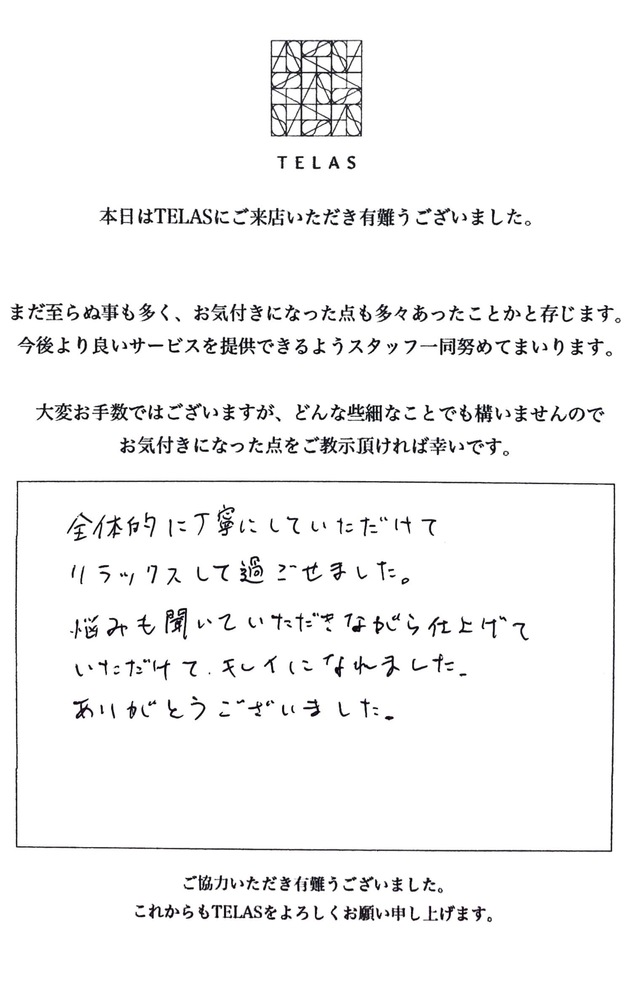 TELAS
本日はTELASにご来店いただき有難うございました。
まだ至らぬ事も多く、お気付きになった点も多々あったことかと存じます。
今後より良いサービスを提供できるようスタッフ一同努めてまいります。
大変お手数ではございますが、どんな些細なことでも構いませんので
お気付きになった点をご教示頂ければ幸いです。
全体的に丁寧にしていただけて
リラックスして過ごせました。
悩みも聞いていただきながら仕上げて
いただけて、キレイになれました。
ありがとうございました。
ご協力いただき有難うございました。
これからもTELASをよろしくお願い申し上げます。